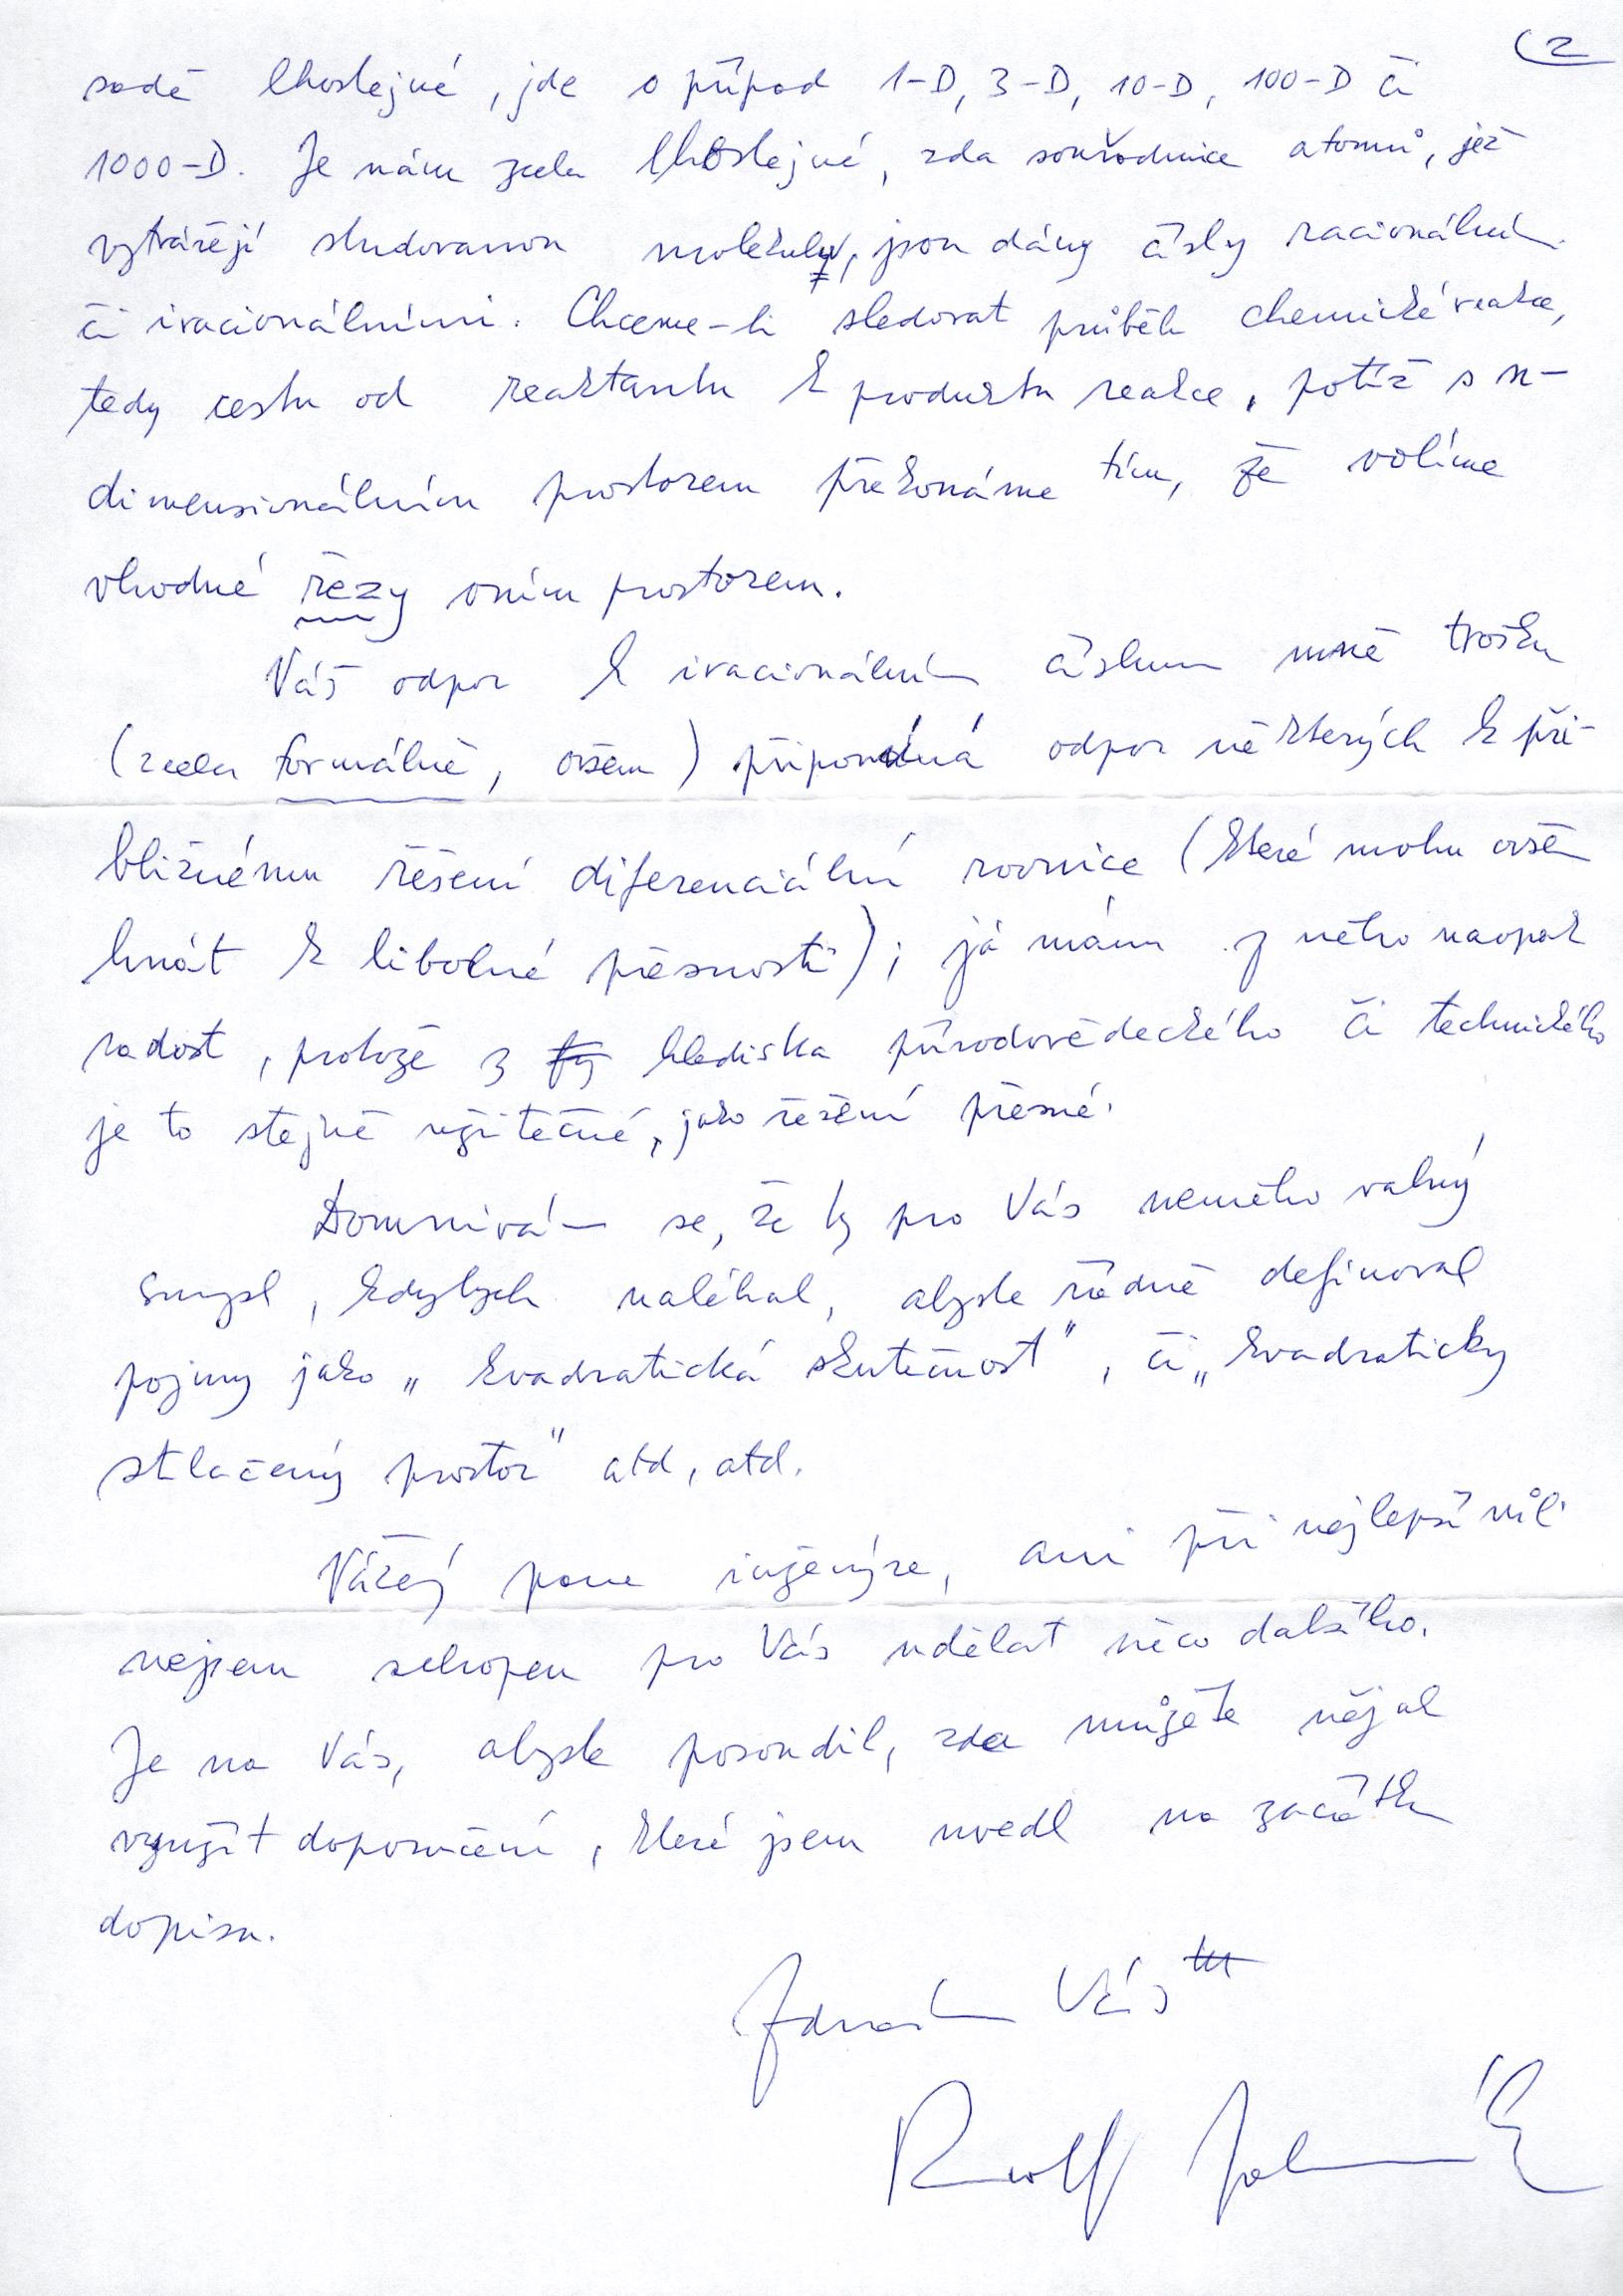 (2
sadě lhostejné, jde o případ 1-D, 3-D, 10-D, 100-D či
1000-D. Je nám zcela lhostejné, zda souřadnice atomů, jež
vytvářejí studovanou molekulu, jsou dány čísly racionálními
či iracionálními. Chceme-li sledovat průběh chemické reakce,
tedy cestu od reaktantu k produktu reakce, potíž s n-
dimensionálním prostorem překonáme tím, že volíme
vhodné řezy oním prostorem.
Váš odpor k iracionálním číslům mně trošku
(zcela formálně, ovšem) připomíná odpor některých k při-
bližnému řešení diferenciální rovnice (které mohu ovšem
hnát k libovolné přesnosti); já mám z něho naopak
radost, protože z hlediska přírodovědeckého či technického
je to stejně užitečné, jako řešení přesné.
Domnívám se, že by pro Vás nemělo valný
smysl, kdybych naléhal, abyste řádně definoval
pojmy jako „kvadratická skutečnost", či „kvadraticky
stlačený prostor" atd, atd.
Vážený pane inženýre, ani při nejlepší vůli
nejsem schopen pro Vás udělat něco dalšího.
Je na Vás, abyste posoudil, zda můžete nějak
využít doporučení, které jsem uvedl na začátku
dopisu.
Zdraví Vás
Rudolf